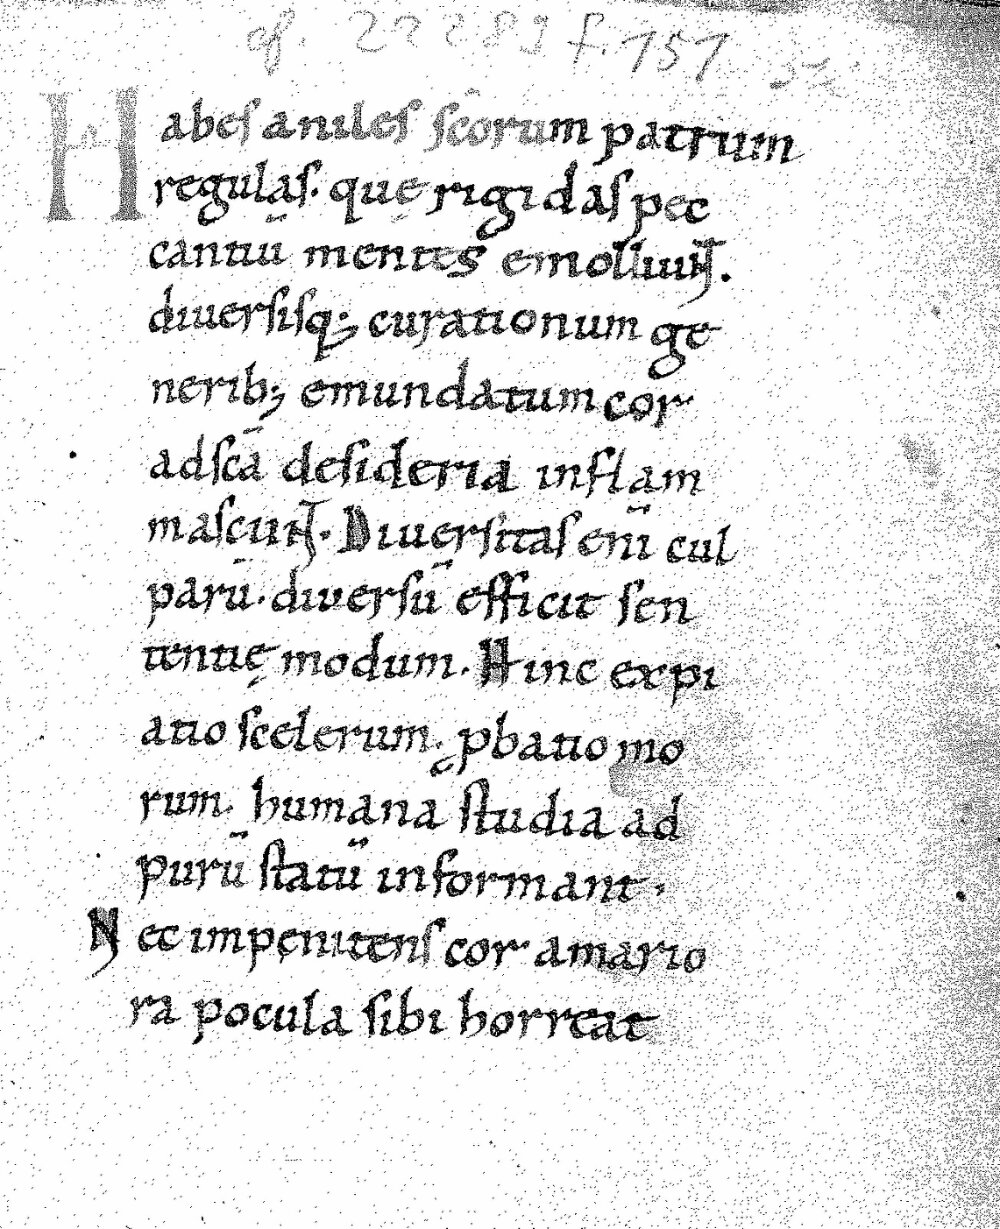 cf. 22289 f. 151
Habes aniles scōrum patrum
regulas. quę rigidas pec
cantiū mentes emolliunt.
diuersisq; curationum ge
nerib; emundatum cor
ad scā desideria inflam
mascunt. Diuersitas eni̅ cul
parū. diuersū efficit sen
tentię modum. Hinc expi
atio scelerum. ꝓbatio mo
rum. humana studia ad
purū statū informant.
Nec impęnitens cor amario
ra pocula sibi horreat